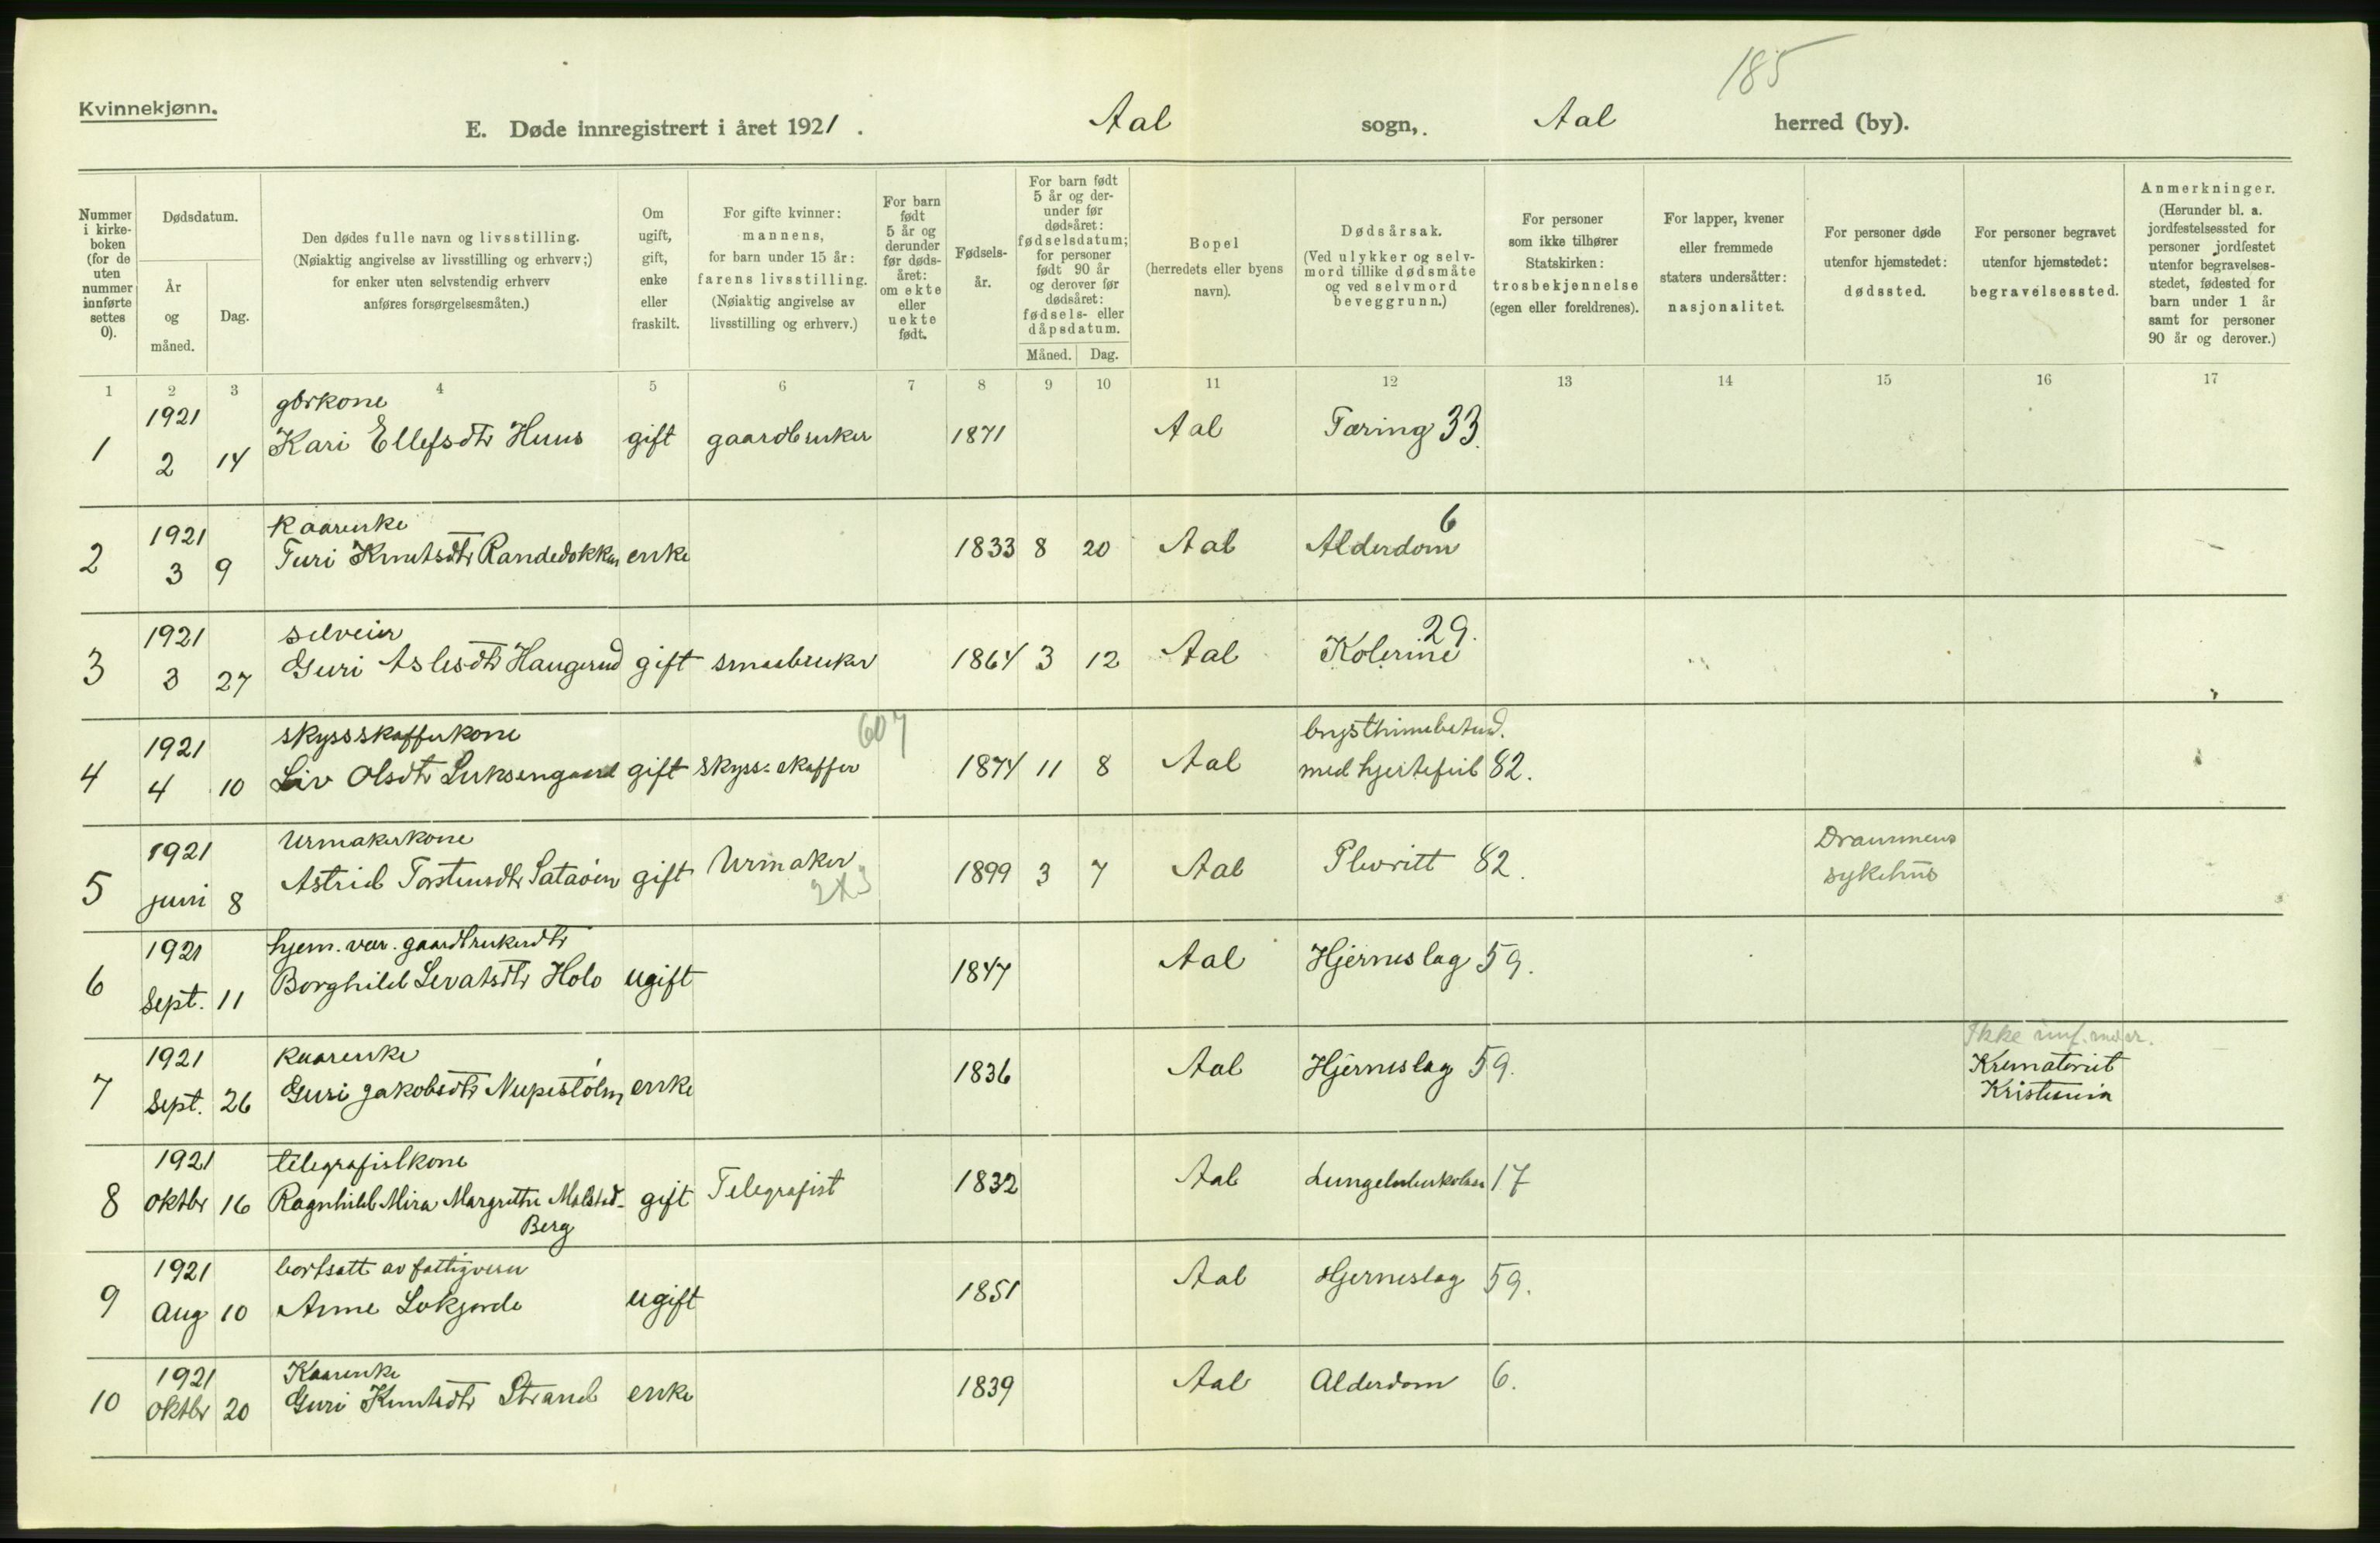 185
Kvinnekjønn.
E. Døde innregistrert i året 1921. Aal sogn, Aal herred (by).
Nummer i kirkeboken (for de uten nummer innførte settes 0).
Dødsdatum.
År og måned.
Dag.
Den dødes fulle navn og livsstilling. (Nøiaktig angivelse av livsstilling og erhverv;) for enker uten selvstendig erhverv anføres forsørgelsesmåten.)
Om ugift, gift, enke eller fraskilt.
For gifte kvinner: mannens, for barn under 15 år: farens livsstilling. (Nøiaktig angivelse av livsstilling og erhverv.)
For barn født 5 år og derunder før dødsåret: om ekte eller uekte født.
Fødselsår.
For barn født 5 år og derunder før dødsåret: fødselsdatum; for personer født 90 år og derover før dødsåret: fødsels- eller dåpsdatum.
Måned. Dag.
Bopel (herredets eller byens navn).
Dødsårsak. (Ved ulykker og selvmord tillike dødsmåte og ved selvmord beveggrunn.)
For personer som ikke tilhører Statskirken: trosbekjennelse (egen eller foreldrenes).
For lapper, kvener eller fremmede staters undersåtter: nasjonalitet.
For personer døde utenfor hjemstedet: dødssted.
For personer begravet utenfor hjemstedet: begravelsessted.
Anmerkninger. (Herunder bl. a. jordfestelsessted for personer jordfestet utenfor begravelsesstedet, fødested for barn under 1 år samt for personer 90 år og derover.)
1 2 3 4 5 6 7 8 9 10 11 12 13 14 15 16 17
1921 gbrkone
1 2 14 Kari Ellefsdtr Huus gift gaardbruker 1871 Aal Tæring 33.
1921 Kaarenke 6
2 3 9 Turi Knutsdtr Randedokken enke 1833 8 20 Aal Alderdom
1921 selveier 29.
3 3 27 Guri Aslesdtr Haugerud gift smaabruker 1864 3 12 Aal Kolerine
1921 skyssskafferkone 607 brysthinnebetend.
4 4 10 Liv Olsdtr Luksengaard gift skyss-skaffer 1874 11 8 Aal med hjertefeil 82.
1921 Urmakerkone Drammens
5 juni 8 Astrid Torstensdtr Sataøen gift Urmaker 1899 3 7 Aal Plevritt 82. sykehus
1921 hjem. vær. gaardbrukerdtr
6 Sept. 11 Borghild Sevatsdtr Holo ugift 1847 Aal Hjerneslag 59.
Ikke
1921 Kaarenke Krematoriet
7 Sept. 26 Guri Jakobsdtr Nupestølen enke 1836 Aal Hjerneslag 59. Kristiania
1921 telegrafistkone
8 oktbr 16 Ragnhild Mira Margrethe Molstad- gift Telegrafist 1832 Aal Lungetuberkolose 17
Berg
1921 bortsatt av fattigvesen
9 Aug 10 Anne Lokjorde ugift 1851 Aal Hjerneslag 59.
1921 Kaarenke
10 oktbr 20 Guri Knutsdtr Strand enke 1839 Aal Alderdom 6.